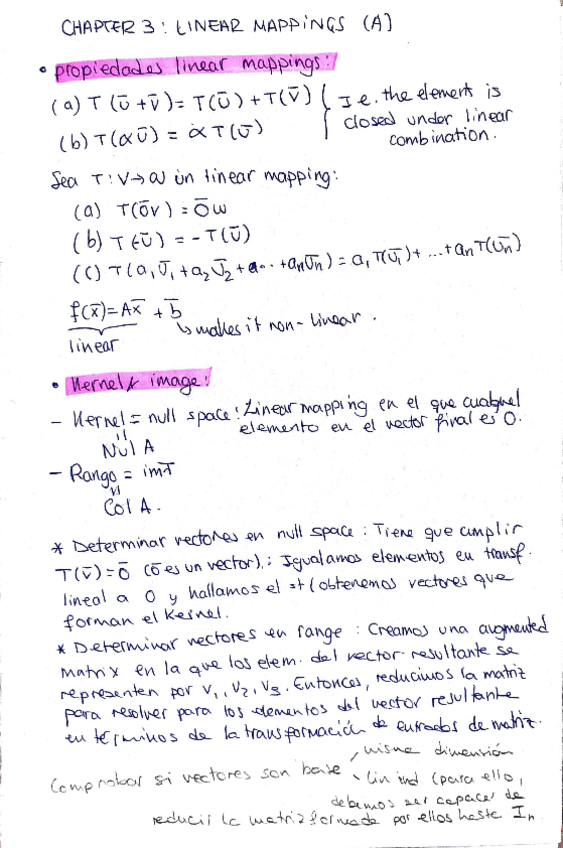 CHAPTER 3: LINEAR MAPPINGS (A)
• propiedades linear mappings:
(a) T(ū+v̄) = T(ū)+T(v̄) { I.e. the element is
closed under linear
(b) T(αū) = αT(ū)
combination.
Sea T: V→W un linear mapping:
(a) T(ōv) = ōw
(b) T(-ū) = -T(ū)
(c) T(a₁ū₁+a₂ū₂+...+anūn) = a₁T(ū₁)+...+anT(ūn)
f(x̄)=Ax̄ + b̄
↳ makes it non-linear.
linear
• Kernel & image:
- Kernel = null space: Linear mapping en el que cualquel
elemento en el vector final es 0.
Nul A
- Rango = imT
Col A.
* Determinar vectores en null space: Tiene que cumplir
T(v̄)=ō (ō es un vector).; Igualamos elementos en transf.
lineal a 0 y hallamos el st (obtenemos vectores que
forman el Kernel.
* Determinar vectores en range: Creamos una augmented
matrix en la que los elem. del vector resultante se
representen por v₁, v₂, v₃. Entonces, reducimos la matriz
para resolver para los elementos del vector resultante
en términos de la transformación de entradas de matriz.
misma dimensión
Comprobar si vectores son base
lin ind (para ello,
debemos ser capaces de
reducir la matriz formada por ellos hasta In